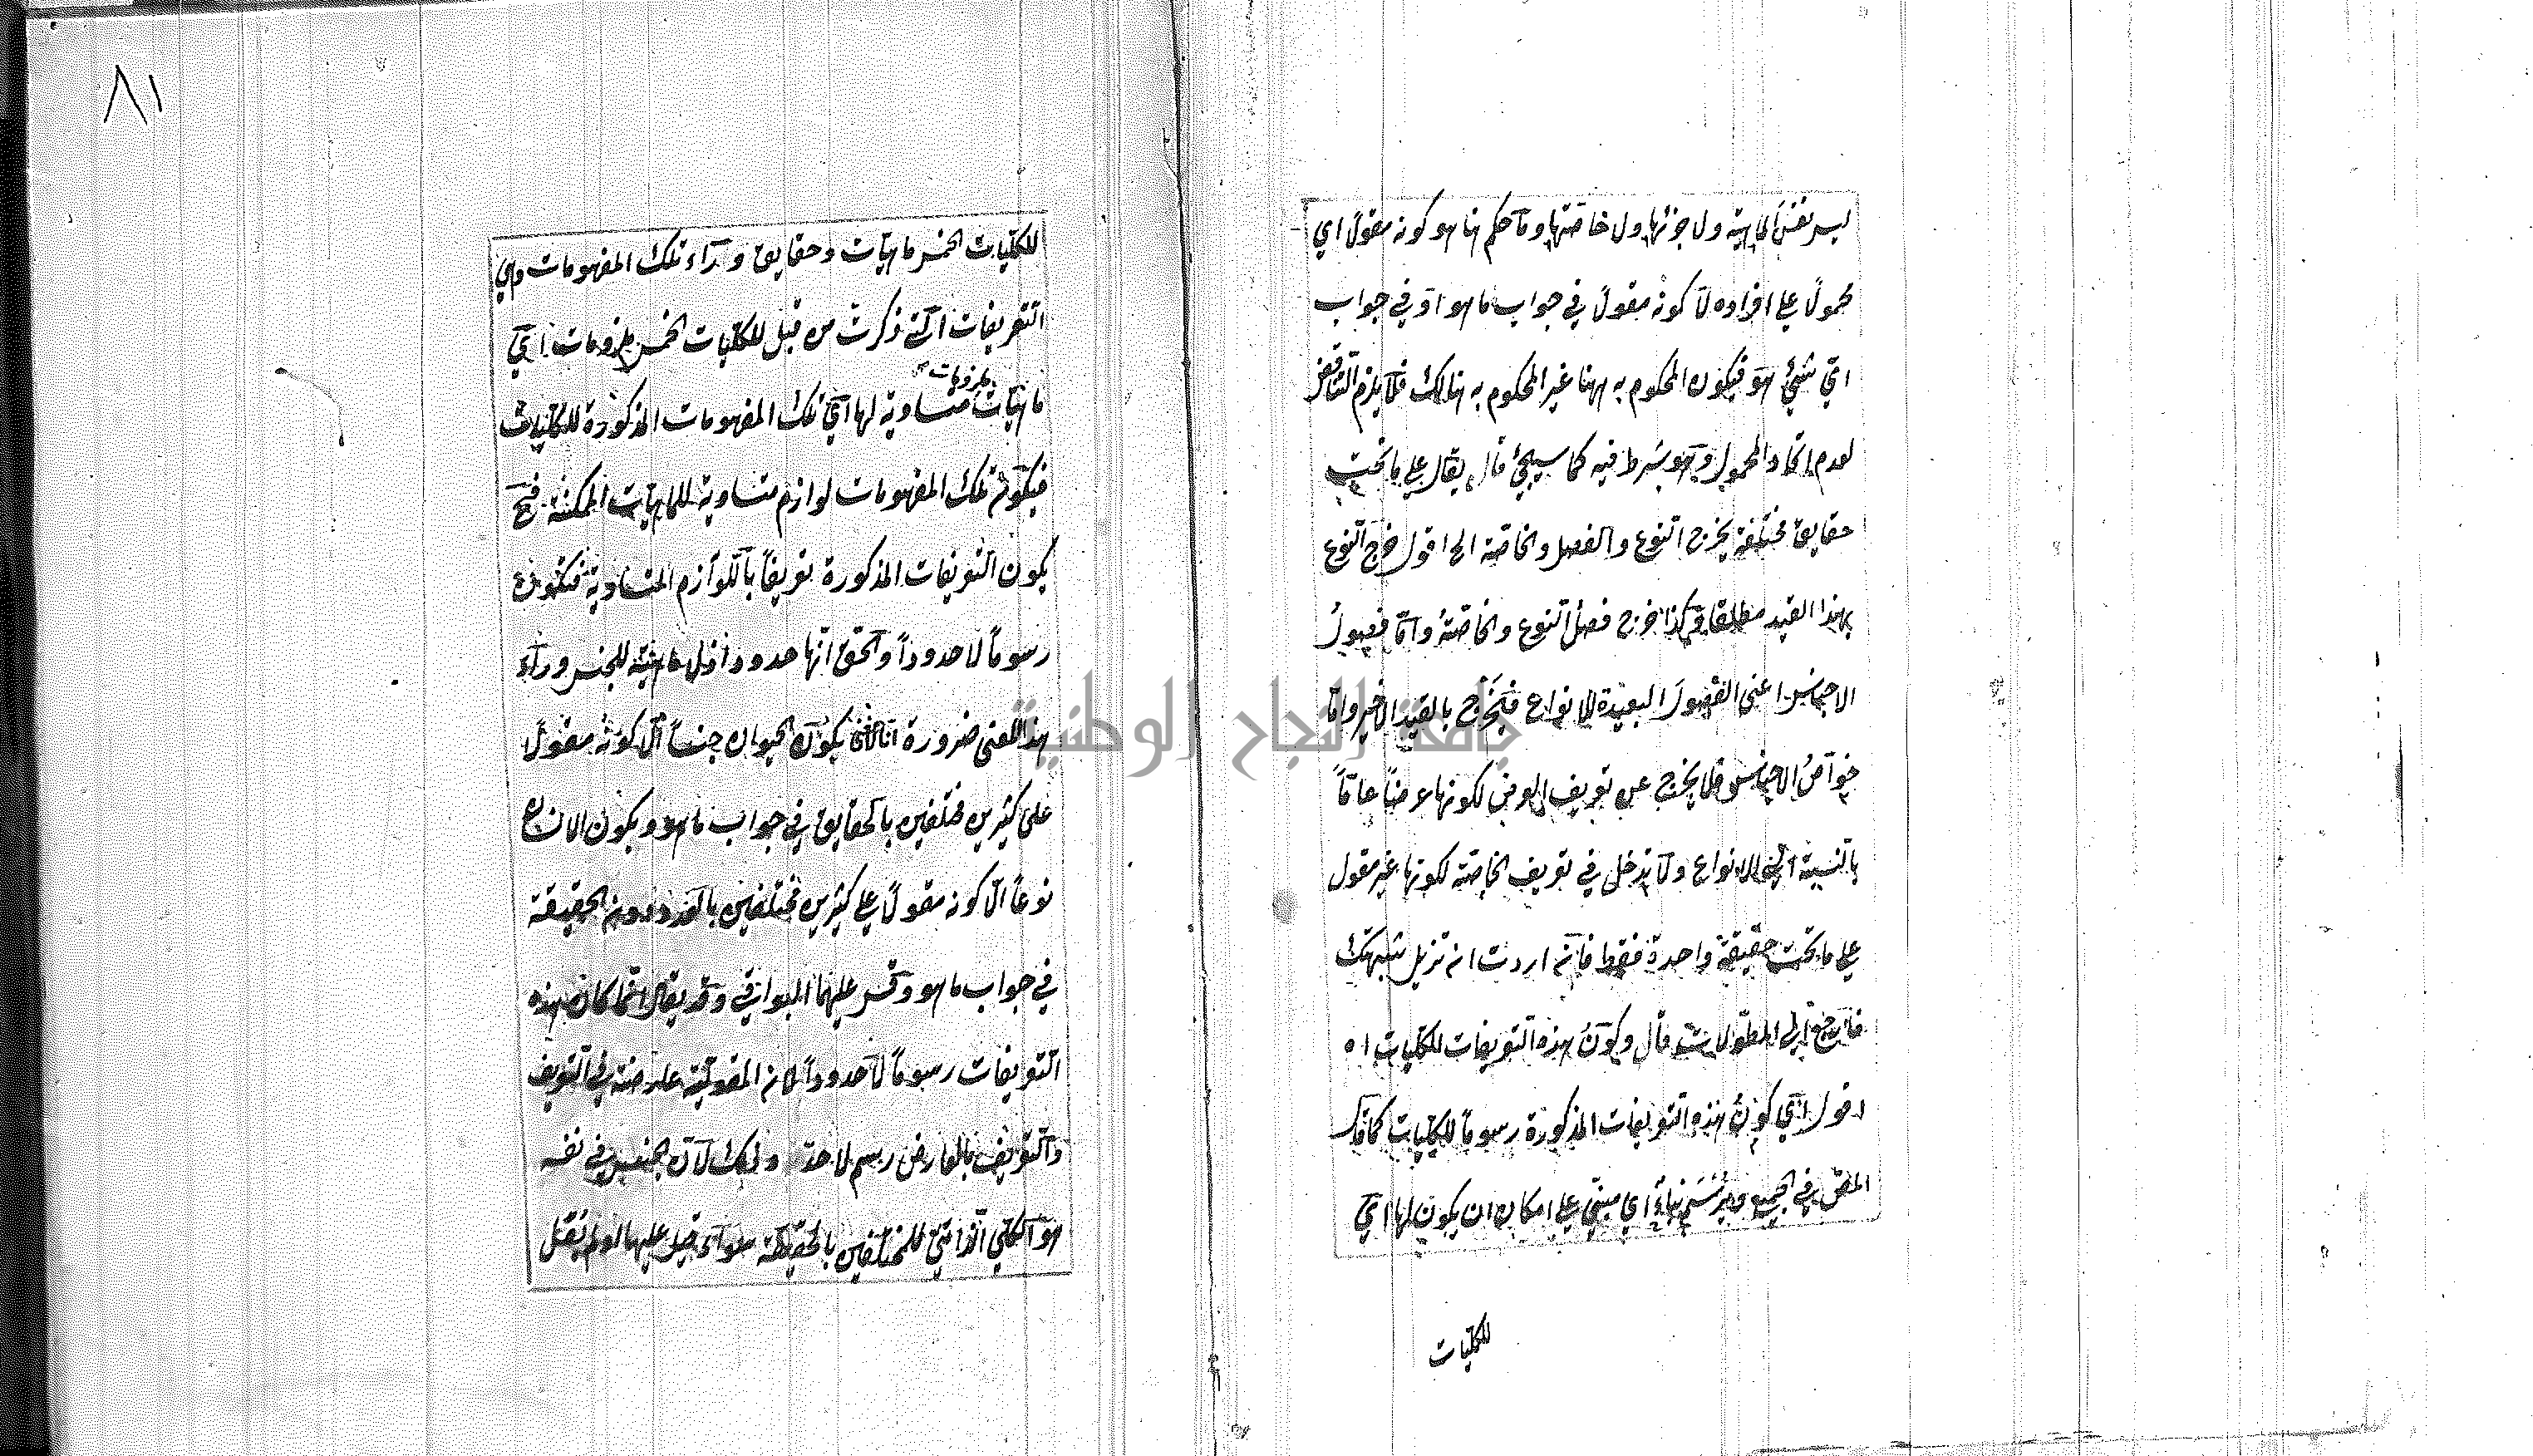 ليس نفس الماهية ولا جزئها ولا خاصتها وما حكم هنا هو كونه مقولا اي
محمولا علي افراده لا كونه مقولا في جواب ما هو او في جواب
اي شيئ هو فيكون المحكوم به ههنا غير المحكوم به هنالك فلا يلزم التناقض
لعدم اتحاد المحمول وهو شرط فيه كما سيجئ قال يقال علي ما تحت
حقايق مختلفة يخرج النوع والفصل والخاصة الخ اقول خرج النوع
بهذا القيد مطلقا وكذا خرج فصل النوع والخاصة واما فصول
الاجناس اعنى الفصول البعيدة للانواع فتخرج بالقيد الاخير واما
خواص الاجناس فلا يخرج عن تعريف العرض لكونها عرضا عاما
بالنسبة الي الانواع ولا تدخل في تعريف الخاصة لكونها غير مقول
علي ما تحت حقيقة واحدة فقط فان اردت ان تزيل شبهتك
فارجع الى المطولات قال وكون هذه التعريفات للكليات اه
اقول اي كون هذه التعريفات المذكورة رسوما للكليات كما قال
المص في الجميع ويرسم بناء اي مبني علي امكان ان يكون لها اي
للكليات
جامعة النجاح الوطنية
٨١
للكليات الخمس ماهيات وحقايق وراء تلك المفهومات وهي
التعريفات التي ذكرت من قبل للكليات الخمس ملزومات اي
ملزومات
ماهيات متساوية لها اي تلك المفهومات المذكورة للكليات
فيكون تلك المفهومات لوازم متساوية للماهيات الممكنة فح
يكون التعريفات المذكورة تعريفا باللوازم المتساوية فتكون
رسوما لا حدودا والحق انها حدود اذ لا ماهية للجنس وراء
هذا المعنى ضرورة انا لا يكون الحيوان جنسا الا كونه مقولا
على كثيرين مختلفين بالحقايق في جواب ما هو ويكون الانسان
نوعا الا كونه مقولا علي كثيرين مختلفين بالعدد دون الحقيقة
في جواب ما هو وقس عليهما البواقي وقد يقال انما كان هذه
التعريفات رسوما لا حدودا لان المقولية عارضة في التعريف
والتعريف بالعارض رسم لا حد وذلك لان الجنس في نفسه
هو الكلي الذاتي للمختلفين بالحقيقة سواء قيل عليها او لم يقل